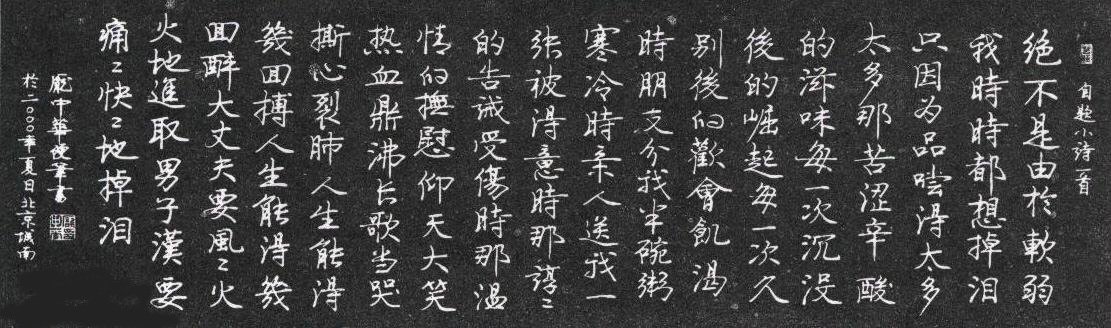 自题小詩一首
绝不是由於軟弱
我時時都想掉泪
只因为品嚐得太多
太多那苦涩辛酸
的滋味每一次沉没
後的崛起每一次久
别後的歡會飢渴
時朋友分我半碗粥
寒冷時亲人送我一
张被得意時那谆〻
的告诫受傷時那温
情的撫慰仰天大笑
热血鼎沸长歌当哭
撕心裂肺人生能得
幾回搏人生能得幾
回醉大丈夫要風〻火
火地進取男子漢要
痛〻快〻地掉泪
庞中華硬筆书
於二〇〇〇年夏日北京城南